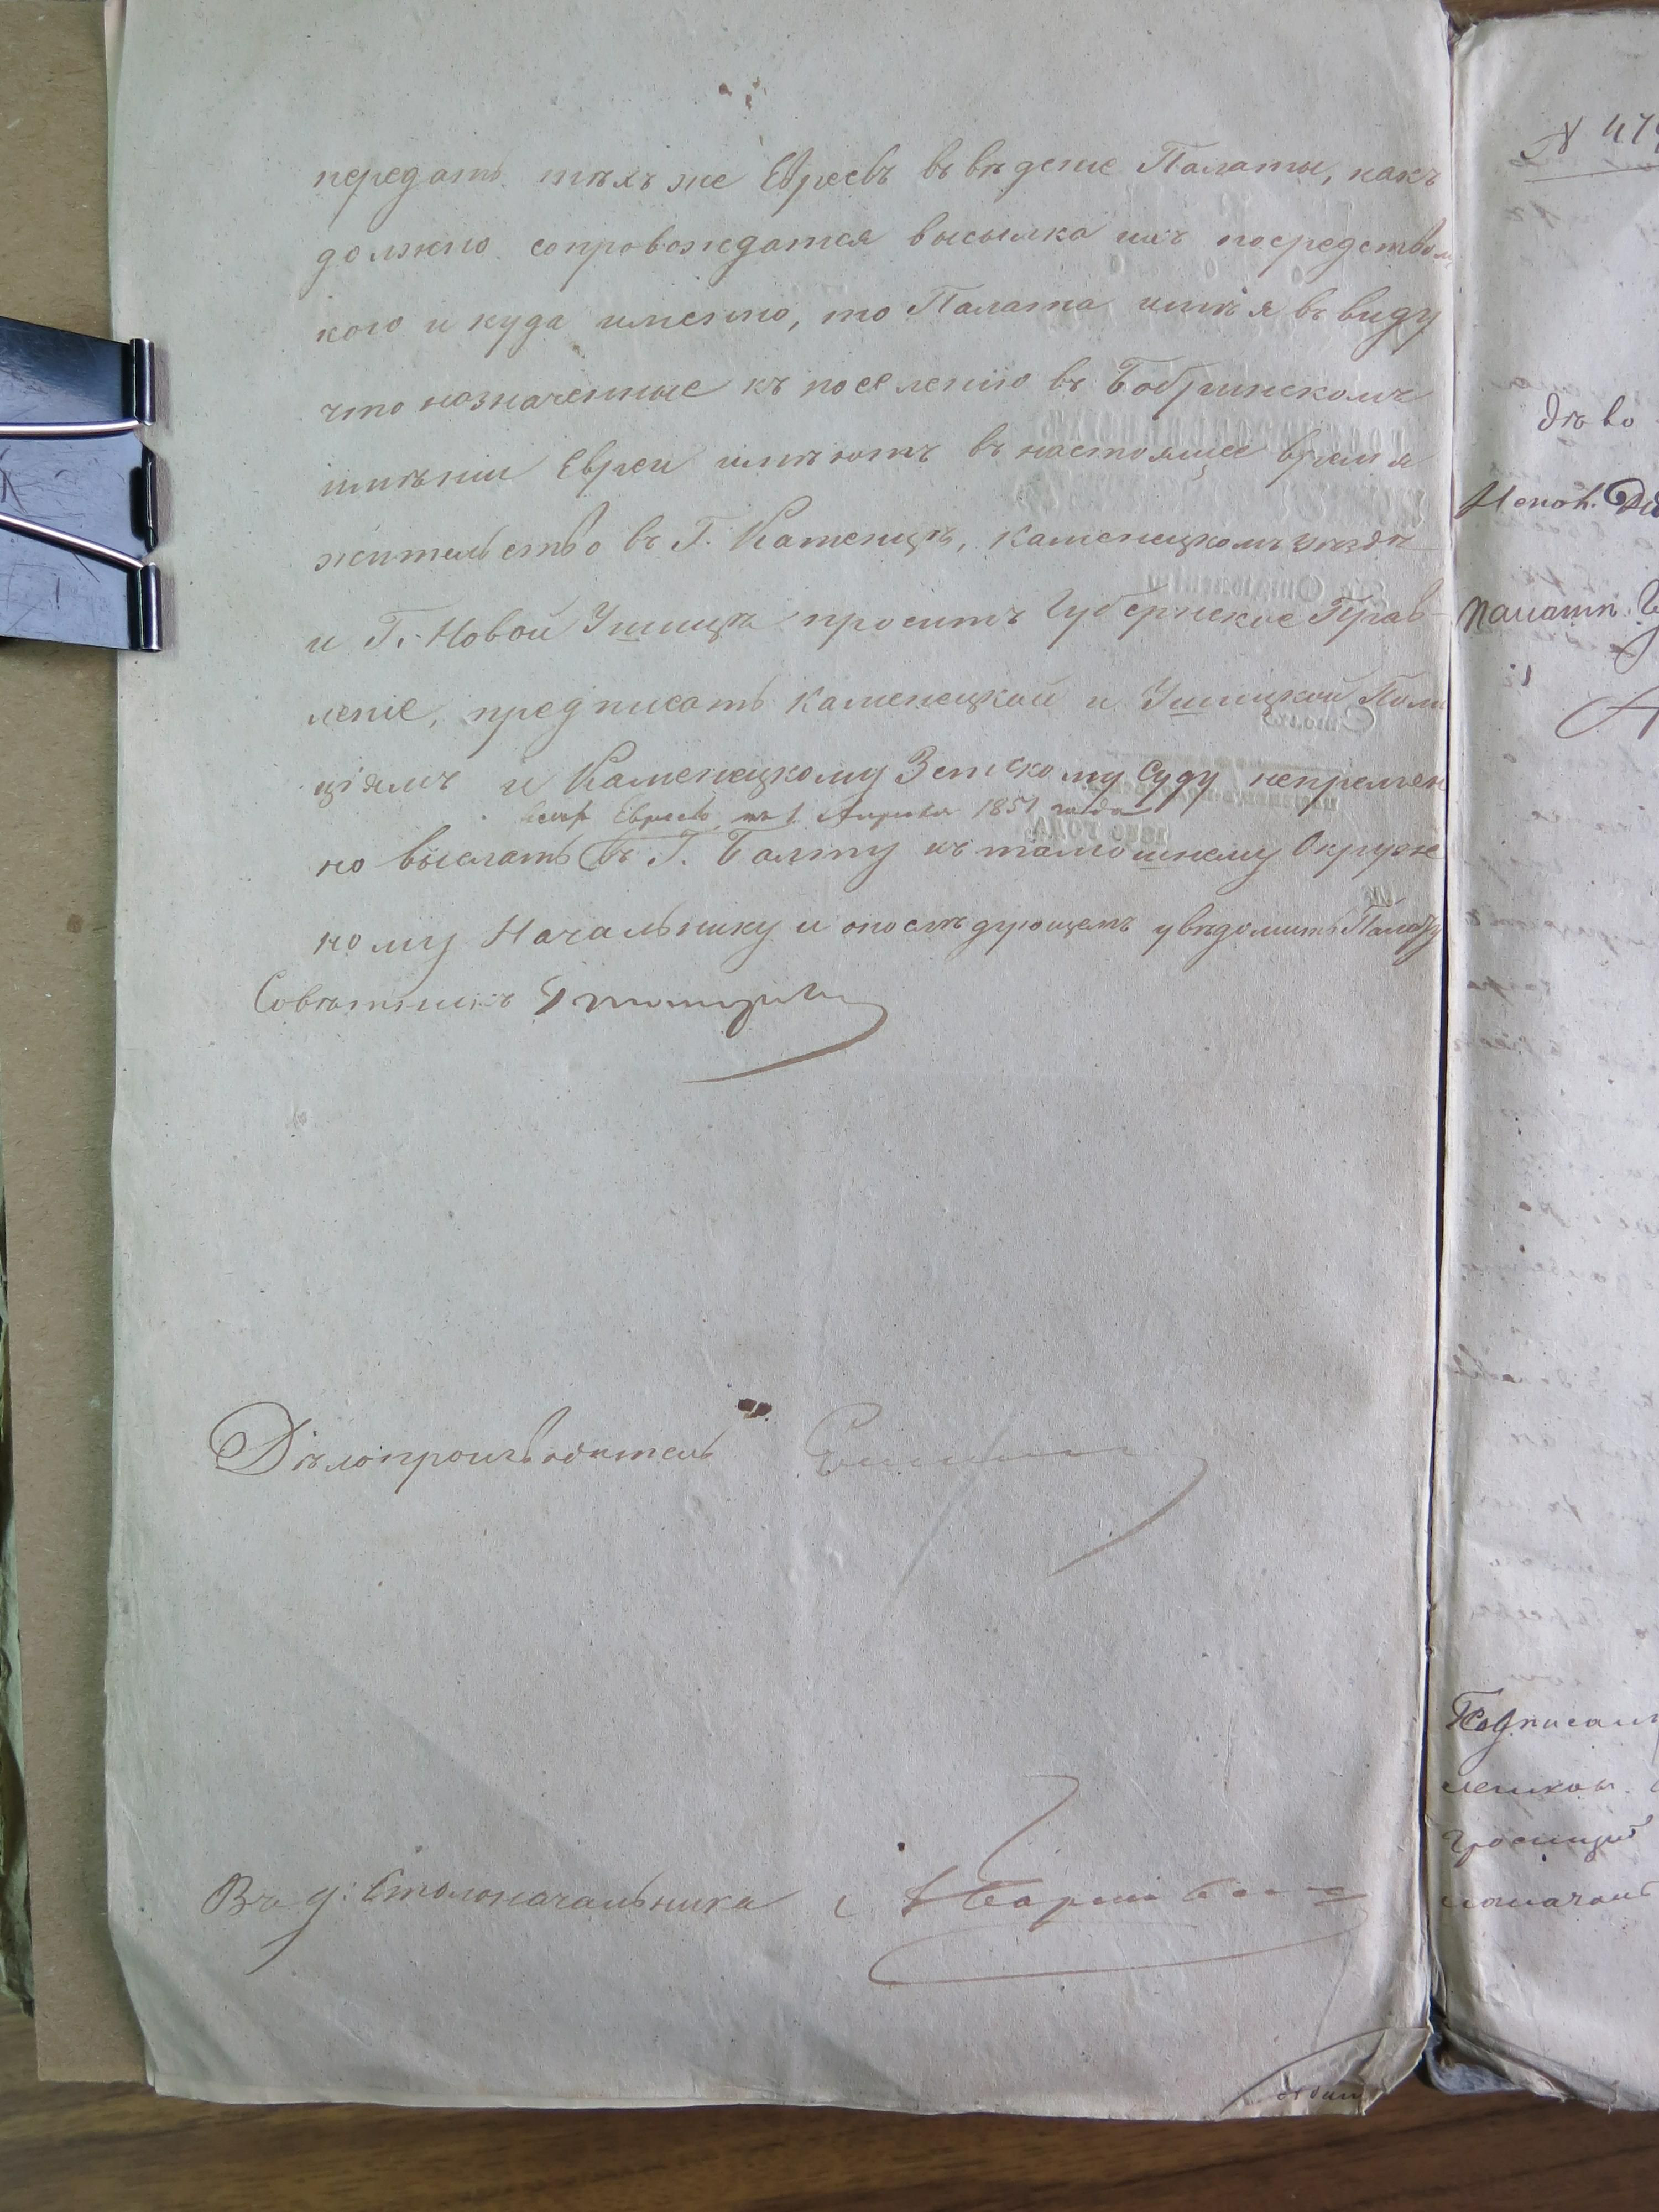 передать тѣхъ же Евреевъ въ вѣденіе Палаты, какъ
должно сопровождатся высылка ихъ посредствомъ
кого и куда именно, то Палата имѣя въ виду
что назначенные къ поселенію въ Бобринскомъ
имѣніи Евреи имѣютъ въ настоящее время
жительство въ Г. Каменцѣ, Каменецкомъ уѣздѣ
и Г. Новой Ушицѣ проситъ Губернское Прав-
леніе, предписать Каменецкой и Ушицкой Поли
ціямъ и Каменецкому Земскому Суду непремѣн
Евреевъ къ 1 Апрѣля 1851 года
но выслать въ Г. Балту къ тамошнему Окруж
ному Начальнику и опослѣдующемъ увѣдомить Палату
Совѣтникъ
Дѣлопроизводитель
Въ д: Столоначальника
№ 474
Дѣ во
Палатѣ.
Подписали